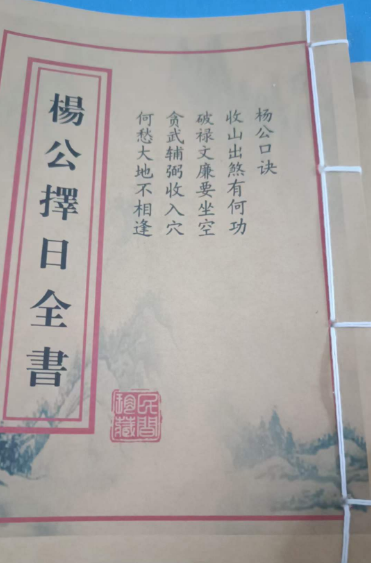 杨公口诀
收山出煞有何功
破禄文廉要坐空
贪武辅弼收入穴
何愁大地不相逢
楊公擇日全書
民間
珍藏